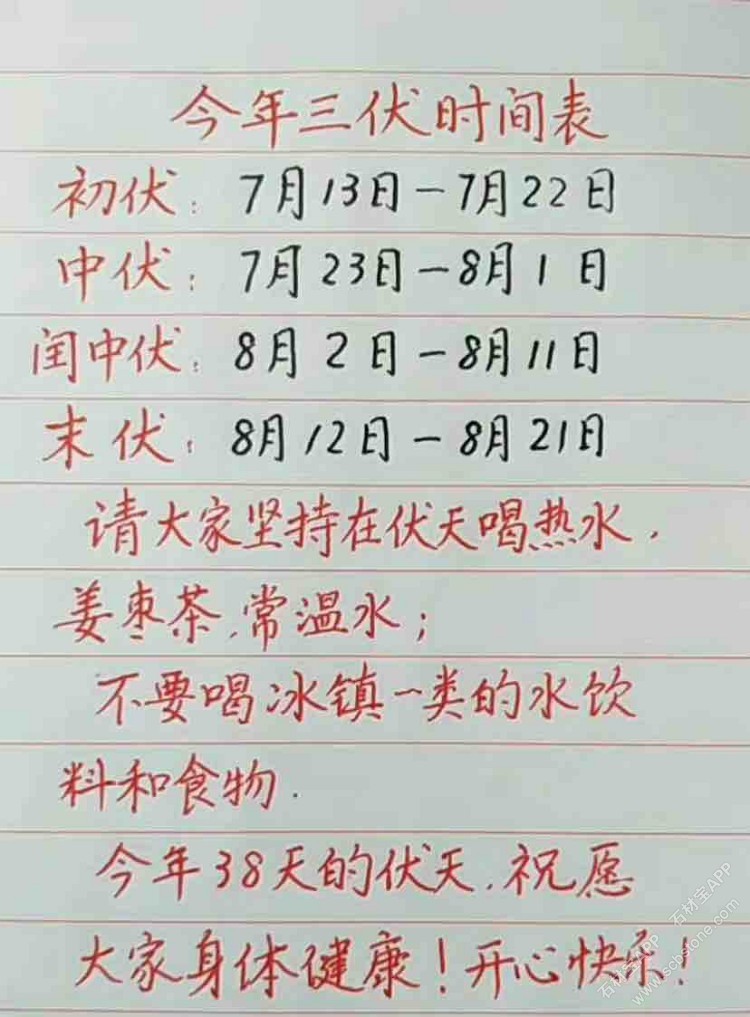 今年三伏时间表
初伏：7月13日－7月22日
中伏：7月23日－8月1日
闰中伏：8月2日－8月11日
末伏：8月12日－8月21日
请大家坚持在伏天喝热水.
姜枣茶.常温水；
不要喝冰镇一类的水饮
料和食物.
今年38天的伏天.祝愿
大家身体健康！开心快乐！
石材宝APP
石材宝APP
www.scbstone.com